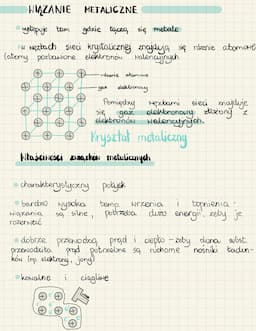 WIĄZANIE METALICZNE
występuje tam gdzie łączą się metale
w węzłach sieci krystalicznej znajdują się rdzenie atomowe
(atomy pozbawione elektronów walencyjnych
rdzenie atomowe
gaz elektronowy
Pomiędzy węzłami sieci znajduje
się gaz elektronowy złożony z
elektronów walencyjnych.
Kryształ metaliczny
Właściwości związków metalicznych
charakterystyczny połysk
bardzo wysoka temp. wrzenia i topnienia -
wiązania są silne, potrzeba dużo energii, żeby je
rozerwać
dobrze przewodzą prąd i ciepło - żeby dana subst.
przewodziła prąd potrzebne są ruchome nośniki ładun-
ków (np. elektrony, jony)
kowalne i ciągliwe